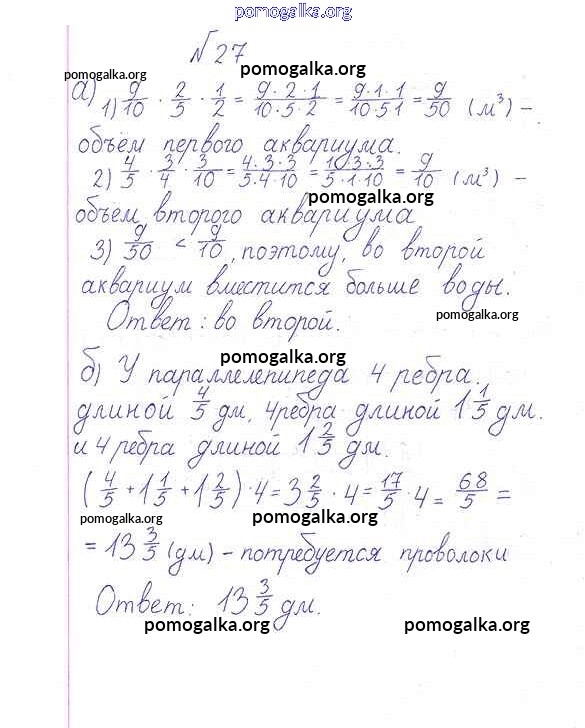 pomogalka.org
№ 27
pomogalka.org
pomogalka.org
а) 1) 9/10 · 2/5 · 1/2 = 9·2·1/10·5·2 = 9·1·1/10·51 = 9/50 (м³) –
объём первого аквариума.
2) 4/5 · 3/4 · 3/10 = 4·3·3/5·4·10 = 1·3·3/5·1·10 = 9/10 (м³) –
pomogalka.org
объём второго аквариума
3) 9/50 < 9/10, поэтому, во второй
аквариум вместится больше воды.
Ответ: во второй.
pomogalka.org
pomogalka.org
б) У параллелепипеда 4 ребра.
длиной 4/5 дм, 4 ребра длиной 1 1/5 дм.
и 4 ребра длиной 1 2/5 дм.
(4/5 + 1 1/5 + 1 2/5) · 4 = 3 2/5 · 4 = 17/5 · 4 = 68/5 =
pomogalka.org
pomogalka.org
= 13 3/5 (дм) – потребуется проволоки
Ответ: 13 3/5 дм.
pomogalka.org
pomogalka.org